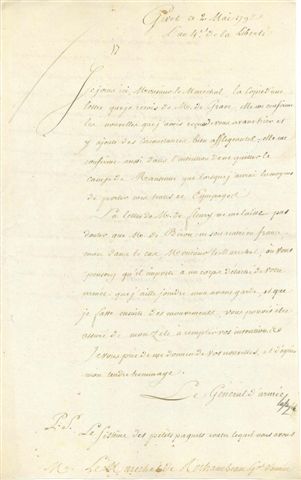 Givet ce 2 Mai 179
L'an 4e. de la Liberté
Je joins ici, Monsieur le Maréchal, la copie d'une
lettre que je reçois de M. de Grave, elle me confirme
les nouvelles que j'avois reçues avant hier et
y ajoute des circonstances bien affligeantes, elle me
confirme aussi dans l'intention de ne quitter le
camp de Ransenne que lorsque j'aurai les moyens
de porter nos tentes et Equipages
La lettre de M. de fleury ne me laisse pas
douter que M. de Biron en soit rentré en france
mais dans le cas, Monsieur le Maréchal, où vous
penseriez qu'il importe à un corps détaché de votre
armée que j'aille joindre mon avant garde, et que
je fasse ensuite des mouvements, vous pouvez être
assuré de mon zèle à remplir vos intentions
Je vous prie de me donner de vos nouvelles, et d'agréer
mon tendre hommage.
Le Général d'armée
P.S. Le sistême des petits paquets contre lequel nous avons
M. Le Maréchal de Rochambeau Gal. d'armée